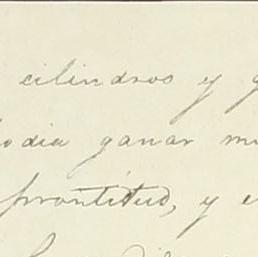 cilindros y
podia ganar
prontitud, y